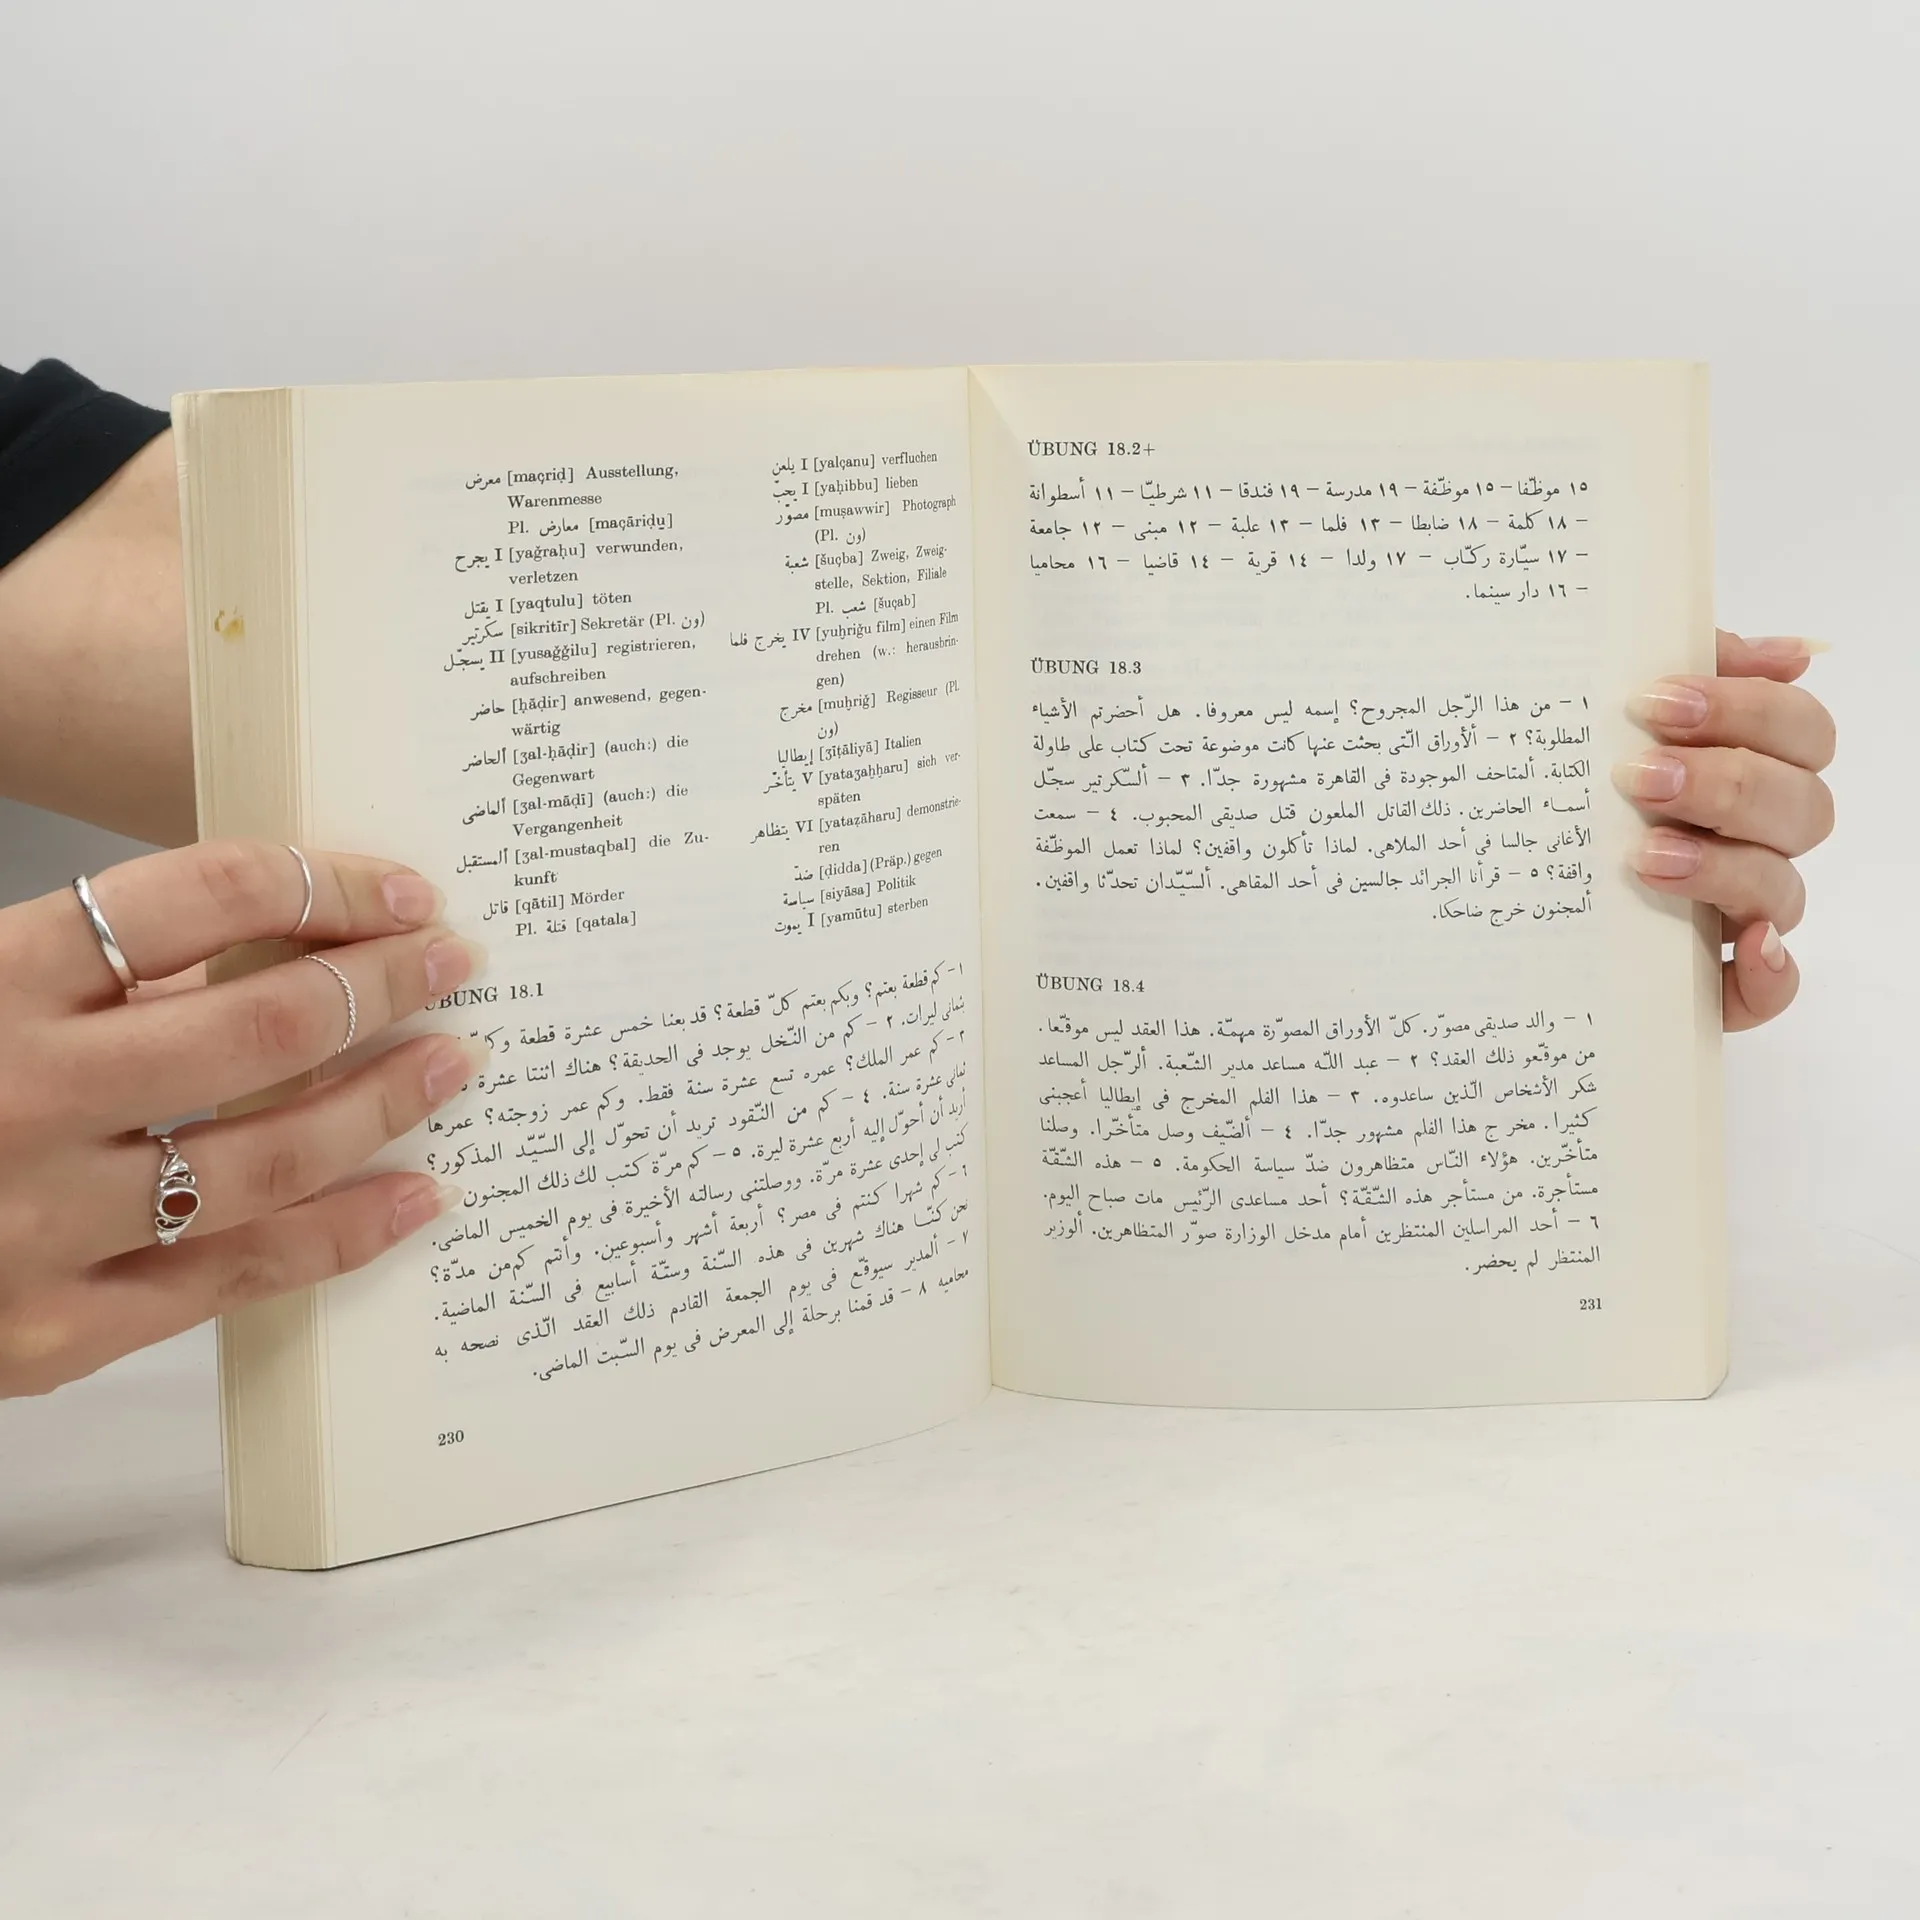 معرض [maçriḍ] Ausstellung,
Warenmesse
Pl. معارض [maçāriḍu]
يجرح I [yaǧraḥu] verwunden,
verletzen
يقتل I [yaqtulu] töten
سكرتير [sikritīr] Sekretär (Pl. ون)
يسجّل II [yusaǧǧilu] registrieren,
aufschreiben
حاضر [ḥāḍir] anwesend, gegen-
wärtig
ألحاضر [ʒal-ḥāḍir] (auch:) die
Gegenwart
ألماضى [ʒal-māḍī] (auch:) die
Vergangenheit
ألمستقبل [ʒal-mustaqbal] die Zu-
kunft
قاتل [qātil] Mörder
Pl. قتلة [qatala]
يلعن I [yalçanu] verfluchen
يحبّ I [yaḥibbu] lieben
مصوّر [muṣawwir] Photograph
(Pl. ون)
شعبة [šuçba] Zweig, Zweig-
stelle, Sektion, Filiale
Pl. شعب [šuçab]
يخرج فلما IV [yuḫriǧu film] einen Film
drehen (w.: herausbrin-
gen)
مخرج [muḫriǧ] Regisseur (Pl.
ون)
إيطاليا [ʒīṭāliyā] Italien
يتأخّر V [yataʒaḫḫaru] sich ver-
späten
يتظاهر VI [yataẓāharu] demonstrie-
ren
ضدّ [ḍidda] (Präp.) gegen
سياسة [siyāsa] Politik
يموت I [yamūtu] sterben
ÜBUNG 18.1
١ – كم قطعة بعتم؟ وبكم بعتم كلّ قطعة؟ قد بعنا خمس عشرة قطعة
بثمانى ليرات. ٢ – كم من النّخل يوجد فى الحديقة؟ هناك اثنتا عشرة
٣ – كم عمر الملك؟ عمره تسع عشرة سنة فقط. وكم عمر زوجته؟ عمرها
ثمانى عشرة سنة. ٤ – كم من النّقود تريد أن تحوّل إلى السّيّد المذكور؟
أريد أن أحوّل إليه أربع عشرة ليرة. ٥ – كم مرّة كتب لك ذلك المجنون
كتب لى إحدى عشرة مرّة. ووصلتنى رسالته الأخيرة فى يوم الخميس الماضى.
٦ – كم شهرا كنتم فى مصر؟ أربعة أشهر وأسبوعين. وأنتم كم من مدّة؟
نحن كنّا هناك شهرين فى هذه السّنة وستّة أسابيع فى السّنة الماضية.
٧ – ألمدير سيوقّع فى يوم الجمعة القادم ذلك العقد الّذى نصحه به
محاميه ٨ – قد قمنا برحلة إلى المعرض فى يوم السّبت الماضى.
230
ÜBUNG 18.2+
١٥ موظّفا – ١٥ موظّفة – ١٩ مدرسة – ١٩ فندقا – ١١ شرطيّا – ١١ أسطوانة
– ١٨ كلمة – ١٨ ضابطا – ١٣ فلما – ١٣ علبة – ١٢ مبنى – ١٢ جامعة
– ١٧ سيّارة ركّاب – ١٧ ولدا – ١٤ قرية – ١٤ قاضيا – ١٦ محاميا
– ١٦ دار سينما.
ÜBUNG 18.3
١ – من هذا الرّجل المجروح؟ إسمه ليس معروفا. هل أحضرتم الأشياء
المطلوبة؟ ٢ – ألأوراق الّتى بحثت عنها كانت موضوعة تحت كتاب على طاولة
الكتابة. ألمتاحف الموجودة فى القاهرة مشهورة جدّا. ٣ – ألسّكرتير سجّل
أسماء الحاضرين. ذلك القاتل الملعون قتل صديقى المحبوب. ٤ – سمعت
الأغانى جالسا فى أحد الملاهى. لماذا تأكلون واقفين؟ لماذا تعمل الموظّفة
واقفة؟ ٥ – قرأنا الجرائد جالسين فى أحد المقاهى. ألسّيّدان تحدّثا واقفين.
ألمجنون خرج ضاحكا.
ÜBUNG 18.4
١ – والد صديقى مصوّر. كلّ الأوراق المصوّرة مهمّة. هذا العقد ليس موقّعا.
من موقّعو ذلك العقد؟ ٢ – عبد اللّه مساعد مدير الشّعبة. ألرّجل المساعد
شكر الأشخاص الّذين ساعدوه. ٣ – هذا الفلم المخرج فى إيطاليا أعجبنى
كثيرا. مخرج هذا الفلم مشهور جدّا. ٤ – ألضّيف وصل متأخّرا. وصلنا
متأخّرين. هؤلاء النّاس متظاهرون ضدّ سياسة الحكومة. ٥ – هذه الشّقّة
مستأجرة. من مستأجر هذه الشّقّة؟ أحد مساعدى الرّئيس مات صباح اليوم.
٦ – أحد المراسلين المنتظرين أمام مدخل الوزارة صوّر المتظاهرين. ألوزير
المنتظر لم يحضر.
231